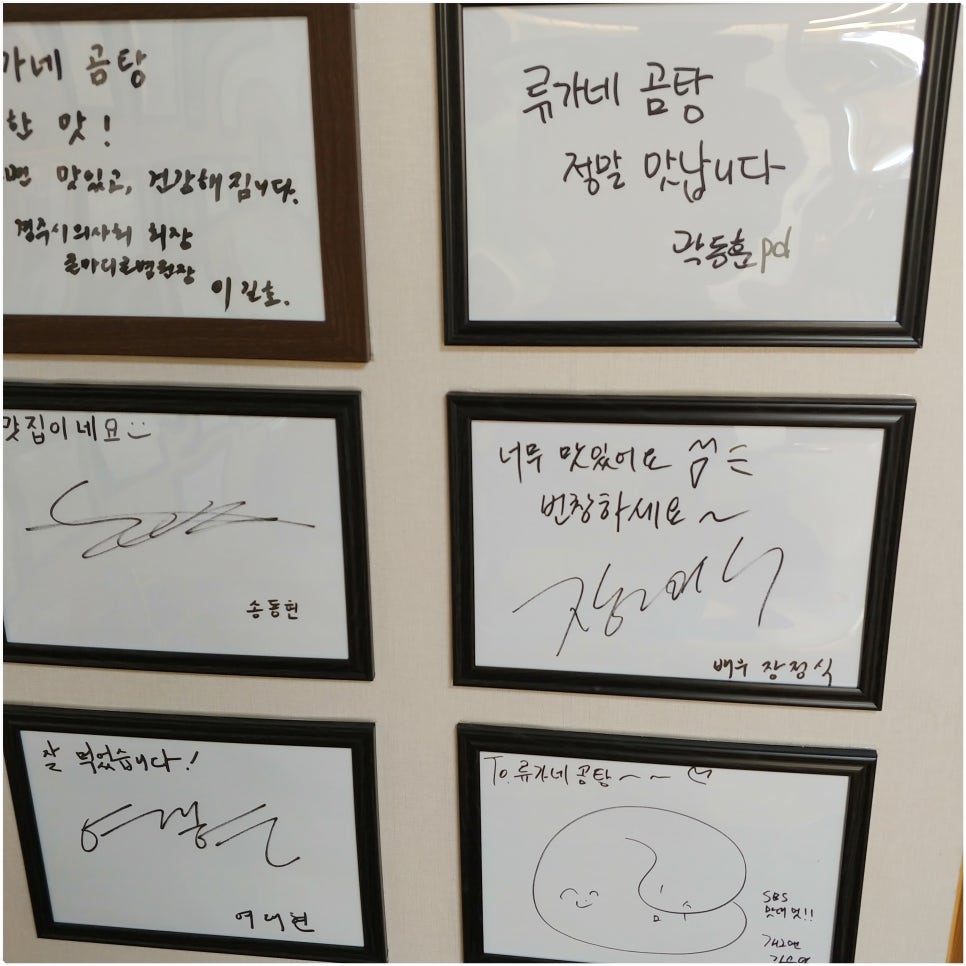 가네 곰탕
한 맛!
맛있고, 건강해집니다.
경주시의사회 회장
이길호.
류가네 곰탕
정말 맛납니다
곽동훈pd
맛집이네요
송동현
너무 맛있어요
번창하세요~
배우 장정식
잘 먹었습니다!
여대현
To.류가네 곰탕~~
SBS
개그맨